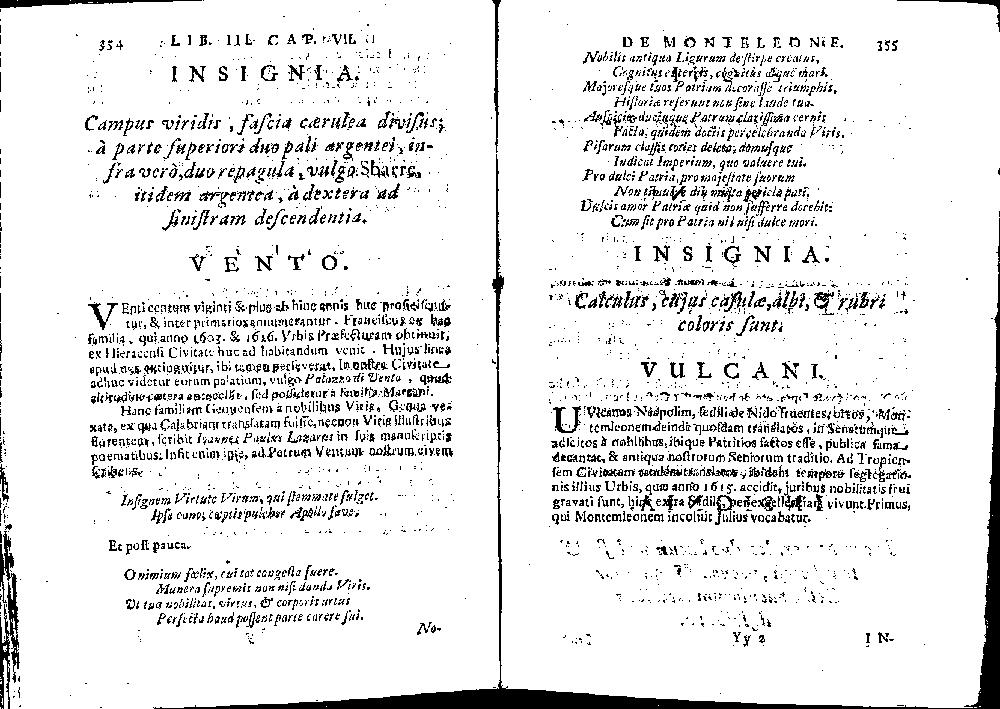 354 LIB. III. CAP. VII.
INSIGNIA.
Campus viridis, fascia cærulea divisus;
à parte superiori duo pali argentei, in-
fra verò, duo repagula, vulgo Sbarre,
itidem argentea, à dextera ad
sinistram descendentia.
VENTO.
VEnti centum viginti & plus ab hinc annis huc proficiscun-
tur, & inter primarios annumerantur. Franciscus ex hac
familia, qui anno 1603. & 1616. Vrbis Præfecturam obtinuit,
ex Hieracensi Civitate huc ad habitandum venit. Hujus linea
apud nos extinguitur, ibi tamen perseverat. In nostra Civitate
adhuc videtur eorum palatium, vulgo Palazzo di Vento, quod
altitudine cætera antecellit, sed possidetur à familia Marzani.
Hanc familiam Genuensem à nobilibus Viris, Genua ve-
xata, ex qua Calabriam translatam fuisse, necnon Viris illustribus
florentem, scribit Ioannes Paulus Lazarus in suis manuscriptis
poematibus: Infit enim ipse, ad Petrum Ventum nostrum civem
Insignem Virtute Virum, qui stemmate fulget.
Ipse cano; cæptis pulcher Apollo fave.
Et post pauca.
O nimium fœlix, cui tot congesta fuere.
Munera supremis non nisi danda Viris.
Vt tua nobilitas, virtus, & corporis artus
Perfecta haud possent parte carere sui.
No-
DE MONTELEONE. 355
Nobilis antiqua Ligurum de stirpe creatus,
Cognitus externis, cognitus atque mari.
Majoresque tuos Patriam decorasse triumphis,
Historiæ referunt non sine laude tua.
Auspiciis ducibusque Patrum clarissima cernis
Facta, quidem doctis percelebranda Viris.
Pisarum classis toties deleta, domusque
Indicat Imperium, quo valuere tui.
Pro dulci Patria, pro majestate suorum
Non tibi dis multa pericla pati.
Dulcis amor Patriæ quid non sufferre docebit:
Cum sit pro Patria nil nisi dulce mori.
INSIGNIA.
Calculus, cujus casulæ, albi, & rubri
coloris sunt.
VULCANI.
UVlcanos Neapolim, sedili de Nido fruentes, ortos; Mon-
temleonem deinde quosdam translatos, in Senatumque
adlcitos à nobilibus, ibique Patritios factos esse, publica fama
decantat, & antiqua nostrorum Seniorum traditio. Ad Tropien-
sem Civitatem translatos, ibidem tempore segregatio-
nis illius Urbis, quæ anno 1615. accidit, juribus nobilitatis frui
gravati sunt, hinc extra Sedile, per excellentiam vivunt. Primus,
qui Montemleonem incoluit Julius vocabatur.
Yy 2 IN-